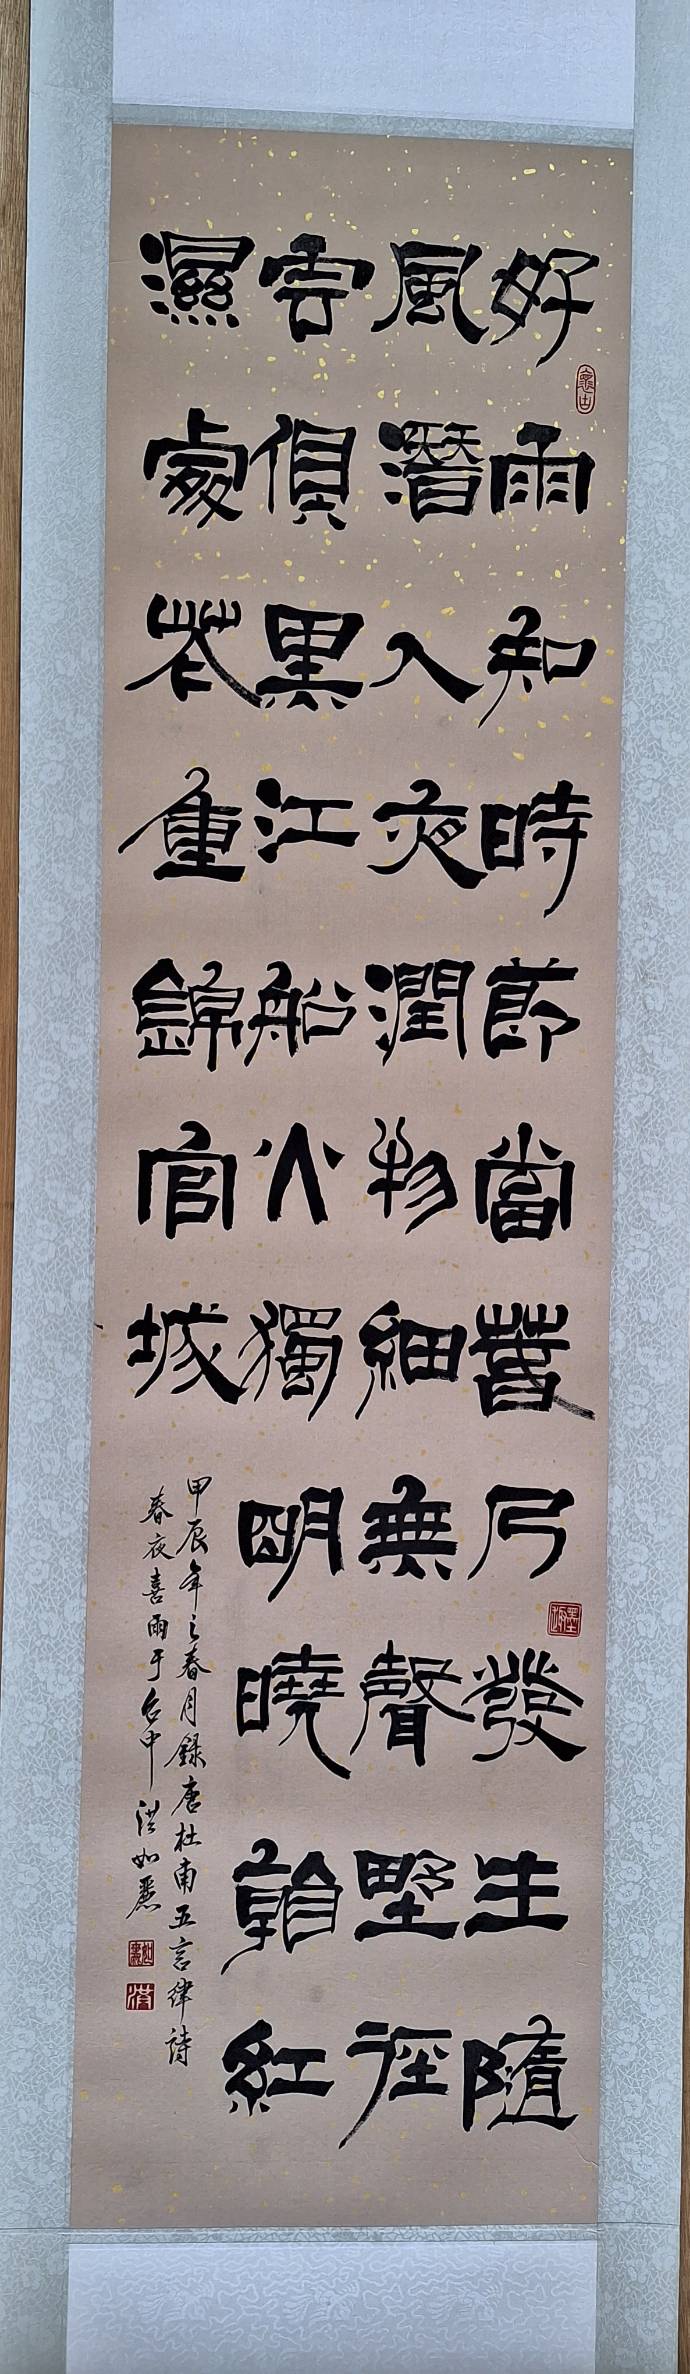 好雨知時節當春乃發生隨
風潛入夜潤物細無聲野徑
雲俱黑江船火獨明曉看紅
濕處花重錦官城
甲辰年之春月錄唐杜甫五言律詩
春夜喜雨于台中 洪如麗